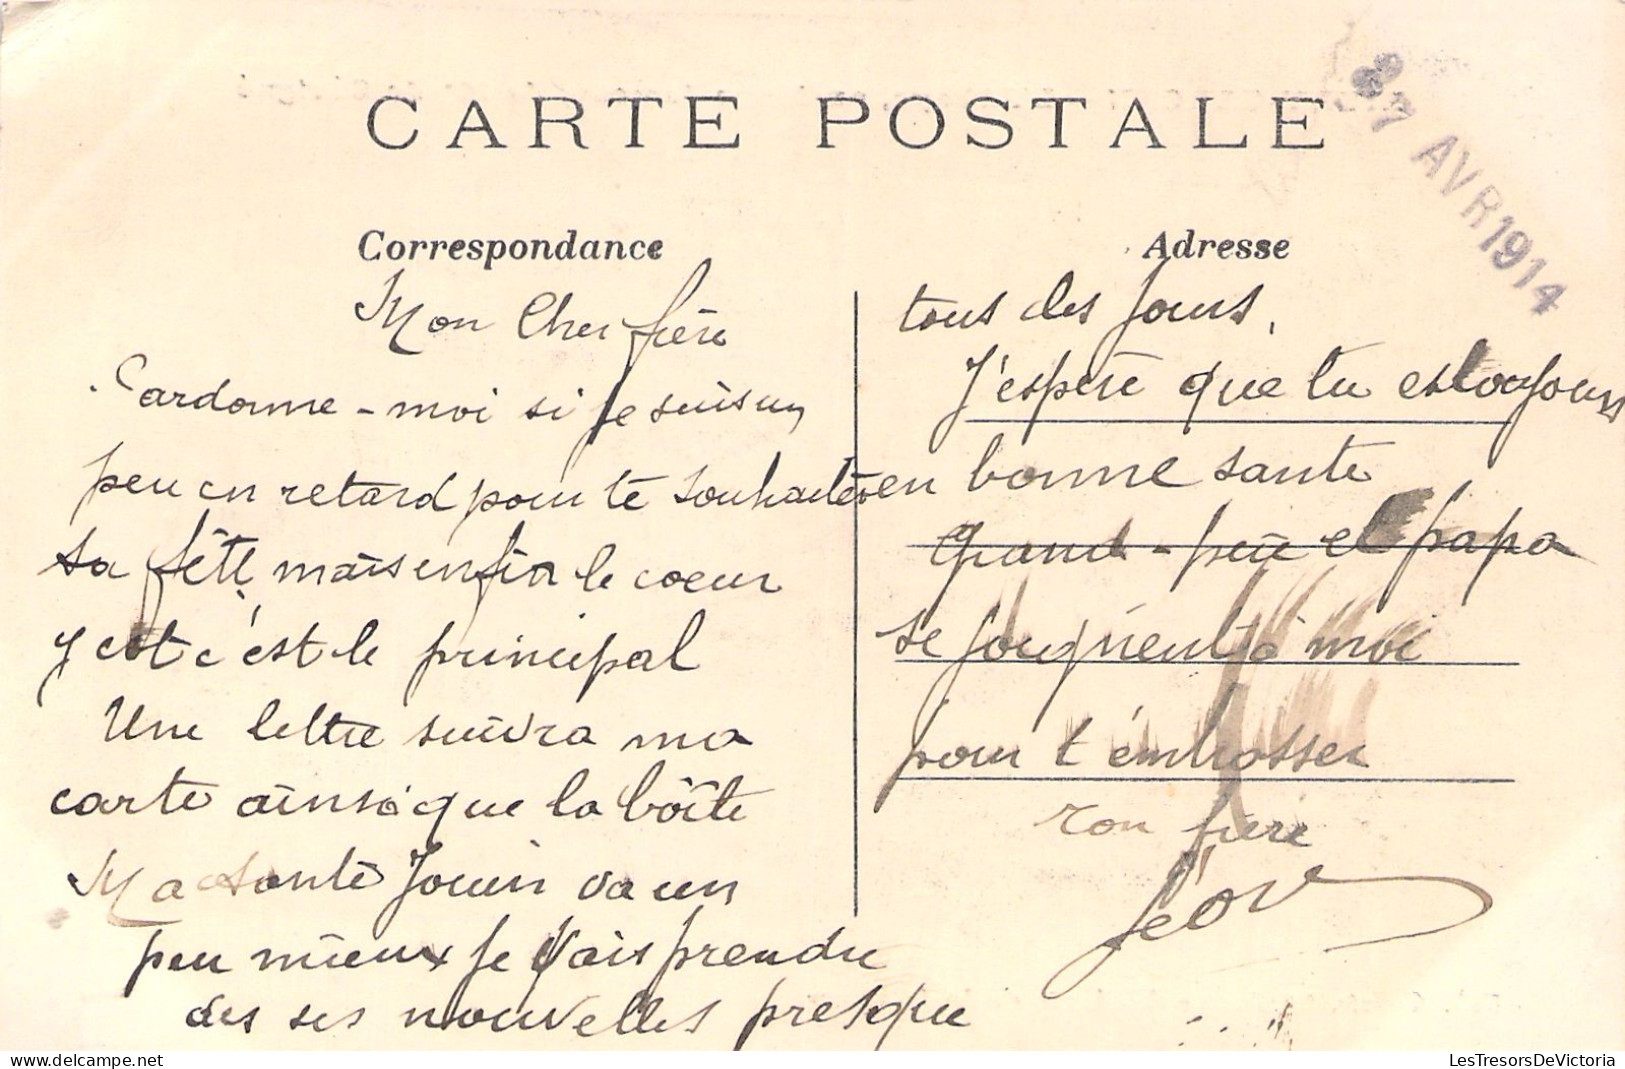 CARTE POSTALE
7 AVR 1914
Correspondance
Mon Cher frère
Pardonne-moi si je suis un
peu en retard pour te souhaiter
ta fête, mais enfin le coeur
y est c'est le principal
Une lettre suivra ma
carte ainsi que la boîte
Ma tante Jouin va un
peu mieux je vais prendre
des ses nouvelles presque
Adresse
tous les jours.
J'espère que tu es toujours
en bonne santé
Grand-père et papa
se joignent à moi
pour t'embrasser
Ton frère
Léon
LesTresorsDeVictoria